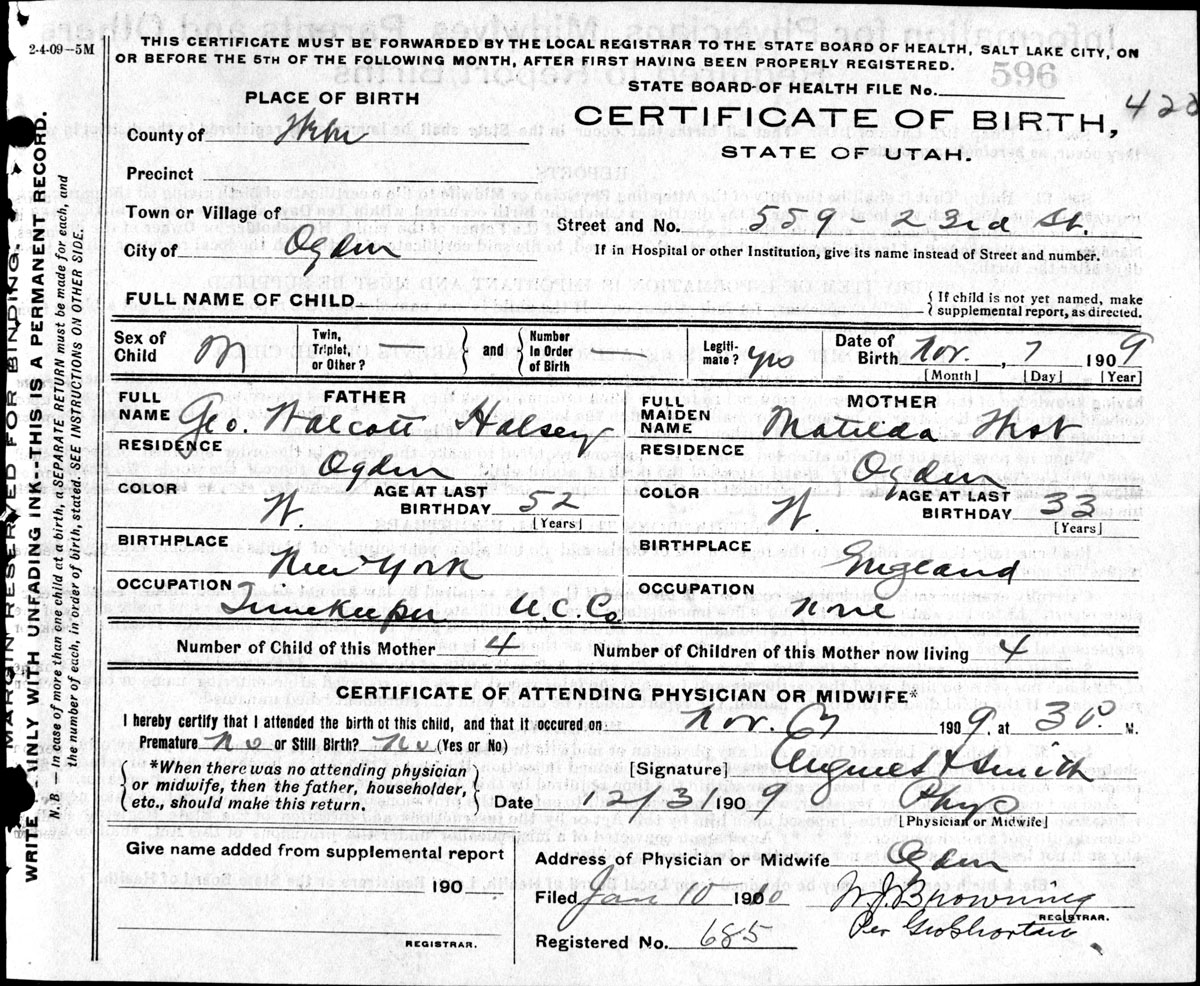 2-4-09—5M
THIS CERTIFICATE MUST BE FORWARDED BY THE LOCAL REGISTRAR TO THE STATE BOARD OF HEALTH, SALT LAKE CITY, ON
OR BEFORE THE 5TH OF THE FOLLOWING MONTH, AFTER FIRST HAVING BEEN PROPERLY REGISTERED.
596
STATE BOARD OF HEALTH FILE No.
422
PLACE OF BIRTH
CERTIFICATE OF BIRTH,
STATE OF UTAH.
County of Weber
Precinct
Town or Village of
Street and No. 559 23rd St.
City of Ogden
If in Hospital or other Institution, give its name instead of Street and number.
FULL NAME OF CHILD
{ If child is not yet named, make
supplemental report, as directed.
Sex of Child M
Twin, Triplet, or Other?
and
Number in Order of Birth
Legitimate? yes
Date of Birth Nov. 7, 1909
[Month] [Day] [Year]
FATHER
FULL NAME Geo. Walcott Halsey
RESIDENCE Ogden
COLOR W.
AGE AT LAST BIRTHDAY 52
[Years]
BIRTHPLACE New York
OCCUPATION Timekeeper U.C. Co.
MOTHER
FULL MAIDEN NAME Matilda
RESIDENCE Ogden
COLOR W.
AGE AT LAST BIRTHDAY 33
[Years]
BIRTHPLACE England
OCCUPATION None
Number of Child of this Mother 4
Number of Children of this Mother now living 4
CERTIFICATE OF ATTENDING PHYSICIAN OR MIDWIFE*
I hereby certify that I attended the birth of this child, and that it occured on Nov. 1909, at M.
Premature No or Still Birth? No (Yes or No)
{ *When there was no attending physician
or midwife, then the father, householder,
etc., should make this return. }
[Signature] Smith
Date 12/31 1909 Phys
[Physician or Midwife]
Give name added from supplemental report
190
REGISTRAR.
Address of Physician or Midwife Ogden
Filed Jan 10 1910 W.J. Browning
REGISTRAR.
Per
Registered No. 685
MARGIN RESERVED FOR BINDING.
WRITE PLAINLY WITH UNFADING INK--THIS IS A PERMANENT RECORD.
N.B.—In case of more than one child at a birth, a SEPARATE RETURN must be made for each, and
the number of each, in order of birth, stated. SEE INSTRUCTIONS ON OTHER SIDE.